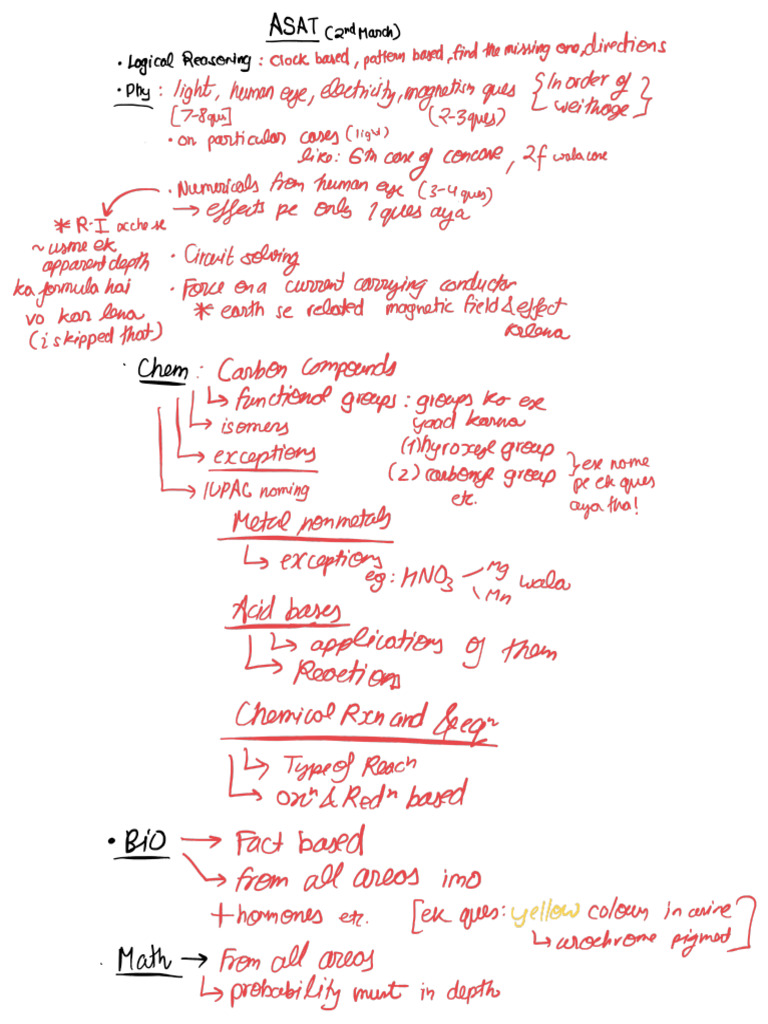 ASAT (2nd March)
• Logical Reasoning : Clock based, pattern based, find the missing one, directions
• Phy : light, human eye, electricity, magnetism ques { In order of weithage }
[7-8ques] (2-3ques)
• on particular cases (light)
like: 6th case of concave, 2f wala case
• Numericals from human eye (3-4 ques)
→ effects pe only 1 ques aya
* R-I acche se
~ usme ek
apparent depth
ka formula hai
vo kar lena
(i skipped that)
• Circuit solving
• Force on a current carrying conductor
* earth se related magnetic field & effect
kelena
• Chem : Carbon Compounds
↳ functional groups : groups ko ex
yaad karna
↳ isomers
(1) hyroxyl group
↳ exceptions
(2) carbonyl group
etc.
} ex name
pe ek ques
aya tha!
→ IUPAC naming
Metal nonmetals
↳ exceptions
eg: HNO3 Mg Mn wala
Acid bases
↳ applications of them
↳ Reactions
Chemical Rxn and &eqn
↳ Type of Reacn
↳ oxn & Redn based
• BiO → Fact based
↳ from all areas imo
+ hormones etc. [ek ques: yellow colour in urine
↳ urochrome pigmed]
• Math → From all areas
↳ probability must in depth